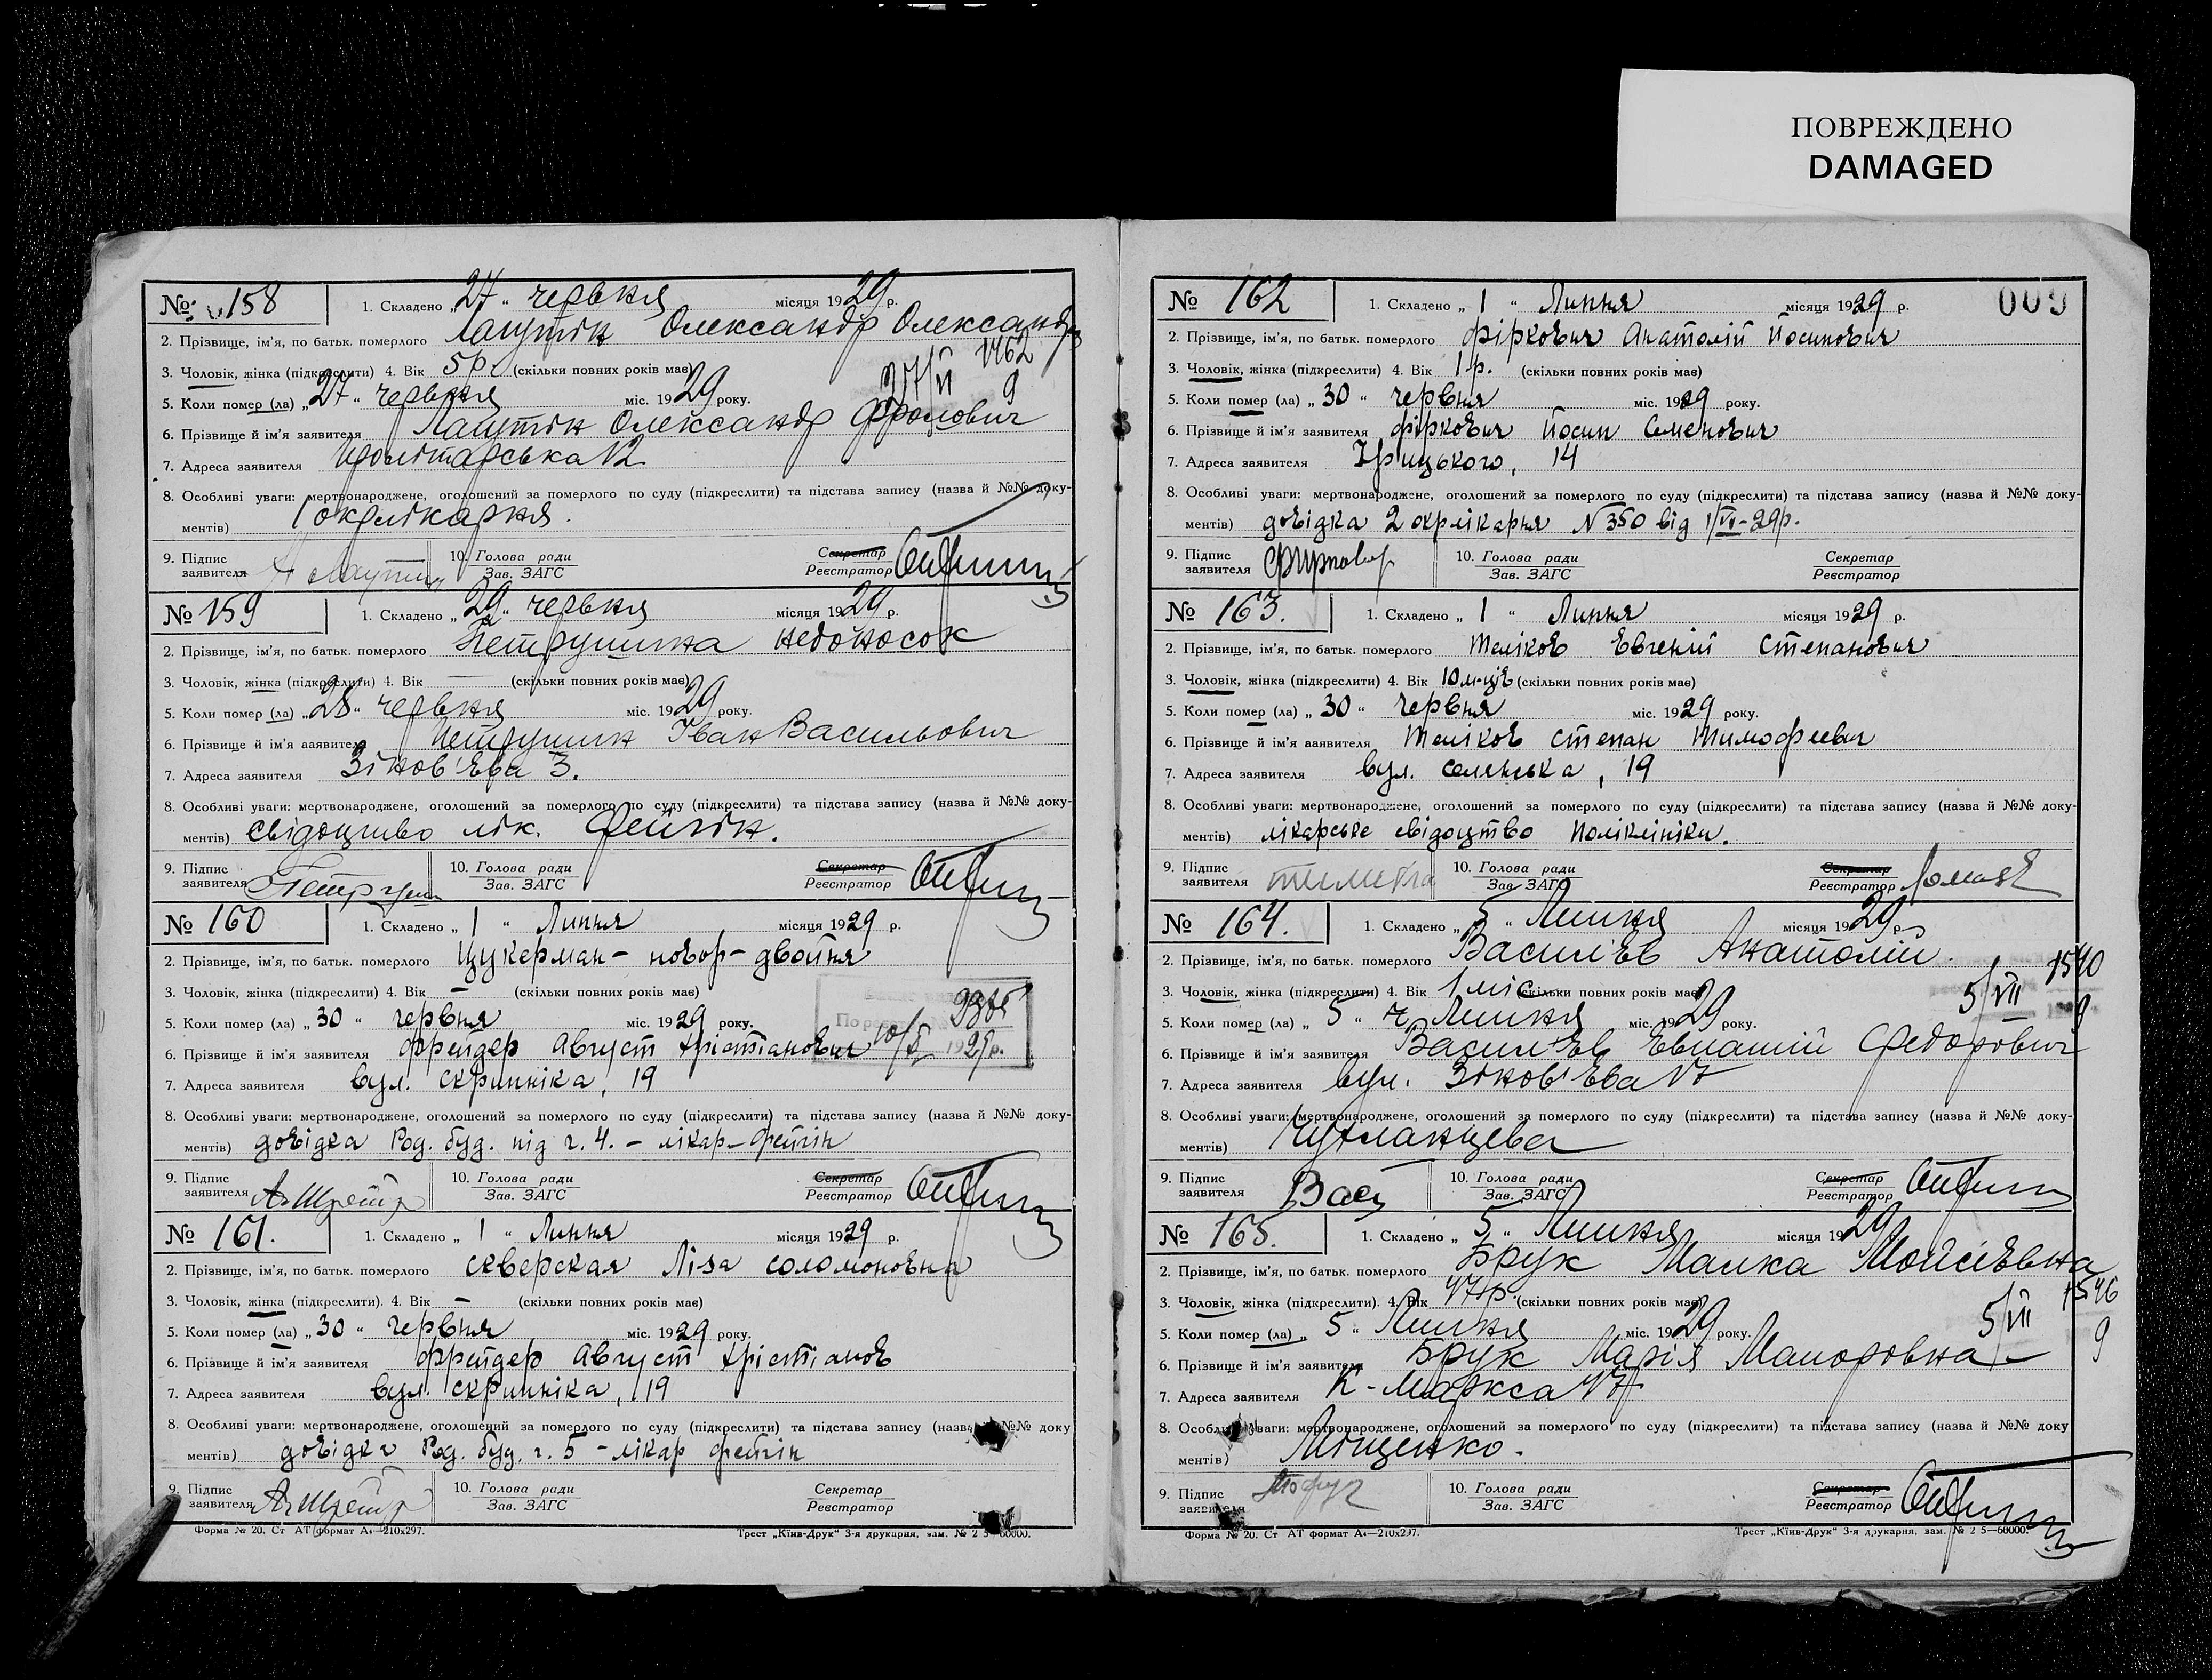 ПОВРЕЖДЕНО
DAMAGED
№ 158 1. Складено „27“ червня місяця 1929 р.
2. Прізвище, ім'я, по батьк. померлого Лагутін Олександр Олександр
3. Чоловік, жінка (підкреслити) 4. Вік 5 р. (скільки повних років має) 1462
5. Коли помер (ла) „27“ червня міс. 1929 року. 27/VI 9
6. Прізвище й ім'я заявителя Лагутін Олександр Фролович
7. Адреса заявителя Пролітарська 12
8. Особливі уваги: мертвонароджене, оголошений за померлого по суду (підкреслити) та підстава запису (назва й №№ доку-
ментів) 1 окрлікарня.
9. Підпис заявителя 10. Голова ради Секретар
Зав. ЗАГС Реєстратор
№ 159 1. Складено „29“ червня місяця 1929 р.
2. Прізвище, ім'я, по батьк. померлого Петрушина недоносок
3. Чоловік, жінка (підкреслити) 4. Вік — (скільки повних років має)
5. Коли помер (ла) „28“ червня міс. 1929 року.
6. Прізвище й ім'я заявителя Петрушин Іван Васильович
7. Адреса заявителя Зінов'єва 3.
8. Особливі уваги: мертвонароджене, оголошений за померлого по суду (підкреслити) та підстава запису (назва й №№ доку-
ментів) свідоцтво лік. Фейгін.
9. Підпис заявителя 10. Голова ради Секретар
Зав. ЗАГС Реєстратор
№ 160 1. Складено „1“ Липня місяця 1929 р.
2. Прізвище, ім'я, по батьк. померлого Цукерман – новор – двойня
3. Чоловік, жінка (підкреслити) 4. Вік — (скільки повних років має)
5. Коли помер (ла) „30“ червня міс. 1929 року.
6. Прізвище й ім'я заявителя Фрейдер Август Хрістіанович 10/X 1929 р.
7. Адреса заявителя вул. Скрипніка, 19
8. Особливі уваги: мертвонароджене, оголошений за померлого по суду (підкреслити) та підстава запису (назва й №№ доку-
ментів) довідка Род. буд. під ч. 4. – лікар – Фейгін
9. Підпис заявителя 10. Голова ради Секретар
Зав. ЗАГС Реєстратор
№ 161. 1. Складено „1“ Липня місяця 1929 р.
2. Прізвище, ім'я, по батьк. померлого Скверская Ліза Соломоновна
3. Чоловік, жінка (підкреслити). 4. Вік — (скільки повних років має)
5. Коли помер (ла) „30“ червня міс. 1929 року.
6. Прізвище й ім'я заявителя Фрейдер Август Хрістіанов
7. Адреса заявителя вул. Скрипніка, 19
8. Особливі уваги: мертвонароджене, оголошений за померлого по суду (підкреслити) та підстава запису (назва й №№ доку
ментів) довідка Род. буд. ч. 5 – лікар Фейгін
9. Підпис заявителя 10. Голова ради Секретар
Зав. ЗАГС Реєстратор
Форма № 20. Ст АТ формат А4—210x297. Трест „Київ-Друк“ 3-я друкарня, зам. № 2 5—60000.
009
№ 162 1. Складено „1“ Липня місяця 1929 р.
2. Прізвище, ім'я, по батьк. померлого Фіркович Анатолій Йосипович
3. Чоловік, жінка (підкреслити) 4. Вік 1 р. (скільки повних років має)
5. Коли помер (ла) „30“ червня міс. 1929 року.
6. Прізвище й ім'я заявителя Фіркович Йосип Семенович
7. Адреса заявителя Урицького, 14
8. Особливі уваги: мертвонароджене, оголошений за померлого по суду (підкреслити) та підстава запису (назва й №№ доку-
ментів) довідка 2 окрлікарня № 350 від 1/VII–29р.
9. Підпис заявителя 10. Голова ради Секретар
Зав. ЗАГС Реєстратор
№ 163. 1. Складено „1“ Липня місяця 1929 р.
2. Прізвище, ім'я, по батьк. померлого Теліков Евгеній Степанович
3. Чоловік, жінка (підкреслити) 4. Вік 10 м-ців (скільки повних років має)
5. Коли помер (ла) „30“ червня міс. 1929 року.
6. Прізвище й ім'я заявителя Теліков Степан Тимофеевич
7. Адреса заявителя вул. Селянська, 19
8. Особливі уваги: мертвонароджене, оголошений за померлого по суду (підкреслити) та підстава запису (назва й №№ доку-
ментів) лікарське свідоцтво поліклініки.
9. Підпис заявителя 10. Голова ради Секретар
Зав. ЗАГС Реєстратор
№ 164. 1. Складено „5“ Липня місяця 1929 р.
2. Прізвище, ім'я, по батьк. померлого Васильєв Анатолій. 1540
3. Чоловік, жінка (підкреслити) 4. Вік 1 міс (скільки повних років має) 5/VII
5. Коли помер (ла) „5“ Липня міс. 1929 року. 9
6. Прізвище й ім'я заявителя Васильєв Федорович
7. Адреса заявителя вул. Зінов'єва 17
8. Особливі уваги: мертвонароджене, оголошений за померлого по суду (підкреслити) та підстава запису (назва й №№ доку-
ментів)
9. Підпис заявителя Вас 10. Голова ради Секретар
Зав. ЗАГС Реєстратор
№ 165. 1. Складено „5“ Липня місяця 1929
2. Прізвище, ім'я, по батьк. померлого Брук Малка Мойсієвна
3. Чоловік, жінка (підкреслити). 4. Вік 47 р. (скільки повних років має) 5/VII 1546
5. Коли помер (ла) „5“ Липня міс. 1929 року. 9
6. Прізвище й ім'я заявителя Брук Марія
7. Адреса заявителя К-Маркса 17
8. Особливі уваги: мертвонароджене, оголошений за померлого по суду (підкреслити) та підстава запису (назва й №№ доку
ментів) Міщенко.
9. Підпис заявителя 10. Голова ради Секретар
Зав. ЗАГС Реєстратор
Форма № 20. Ст АТ формат А4—210x297. Трест „Київ-Друк“ 3-я друкарня, зам. № 2 5—60000.